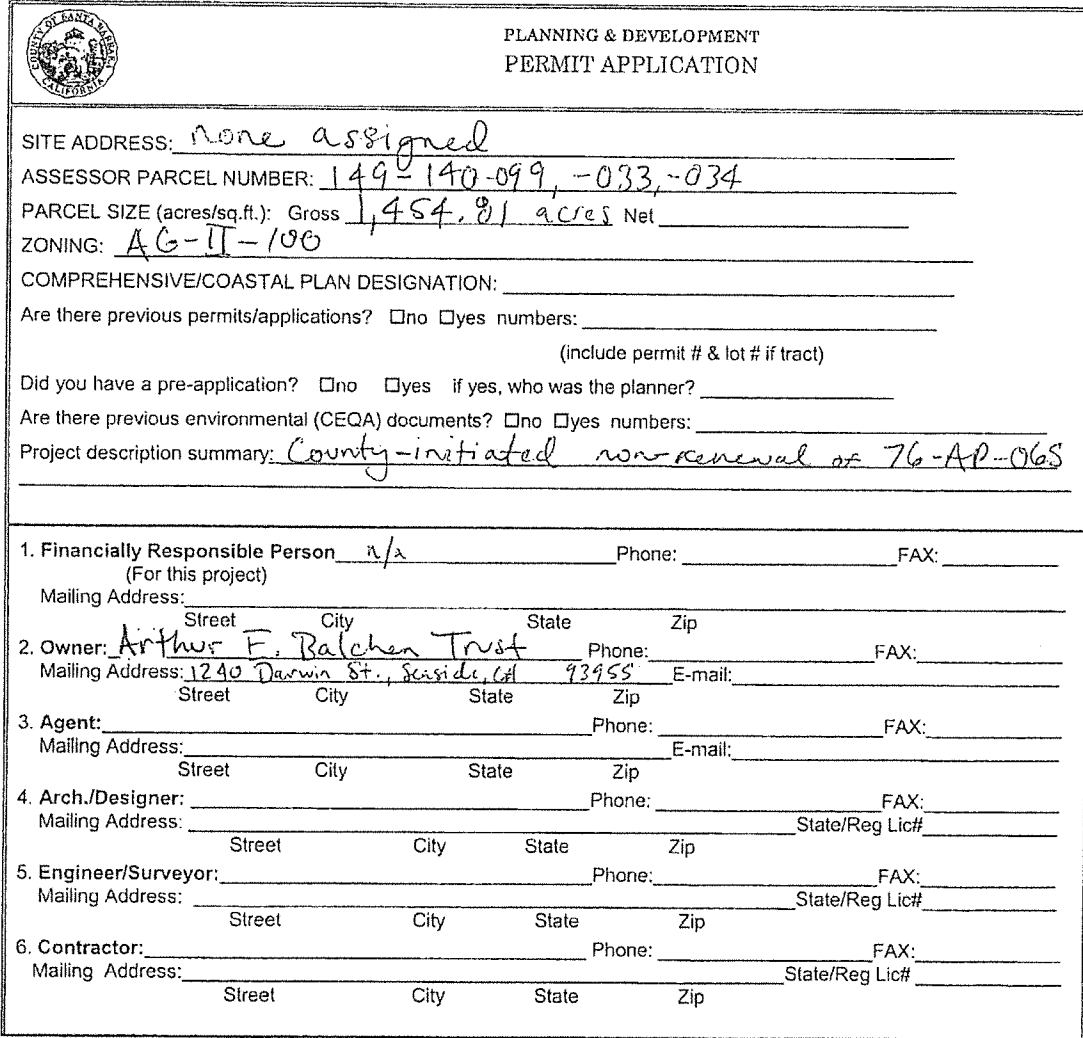 COUNTY OF SANTA BARBARA
CALIFORNIA
PLANNING & DEVELOPMENT
PERMIT APPLICATION
SITE ADDRESS: none assigned
ASSESSOR PARCEL NUMBER: 149-140-099, -033, -034
PARCEL SIZE (acres/sq.ft.): Gross 1,454.81 acres Net
ZONING: AG-II-100
COMPREHENSIVE/COASTAL PLAN DESIGNATION:
Are there previous permits/applications? □no □yes numbers:
(include permit # & lot # if tract)
Did you have a pre-application? □no □yes if yes, who was the planner?
Are there previous environmental (CEQA) documents? □no □yes numbers:
Project description summary: County-initiated non-renewal of 76-AP-065
1. Financially Responsible Person n/a Phone: FAX:
(For this project)
Mailing Address:
Street City State Zip
2. Owner: Arthur E. Balchen Trust Phone: FAX:
Mailing Address: 1240 Darwin St., Seaside, CA 93955 E-mail:
Street City State Zip
3. Agent: Phone: FAX:
Mailing Address: E-mail:
Street City State Zip
4. Arch./Designer: Phone: FAX:
Mailing Address: State/Reg Lic#
Street City State Zip
5. Engineer/Surveyor: Phone: FAX:
Mailing Address: State/Reg Lic#
Street City State Zip
6. Contractor: Phone: FAX:
Mailing Address: State/Reg Lic#
Street City State Zip